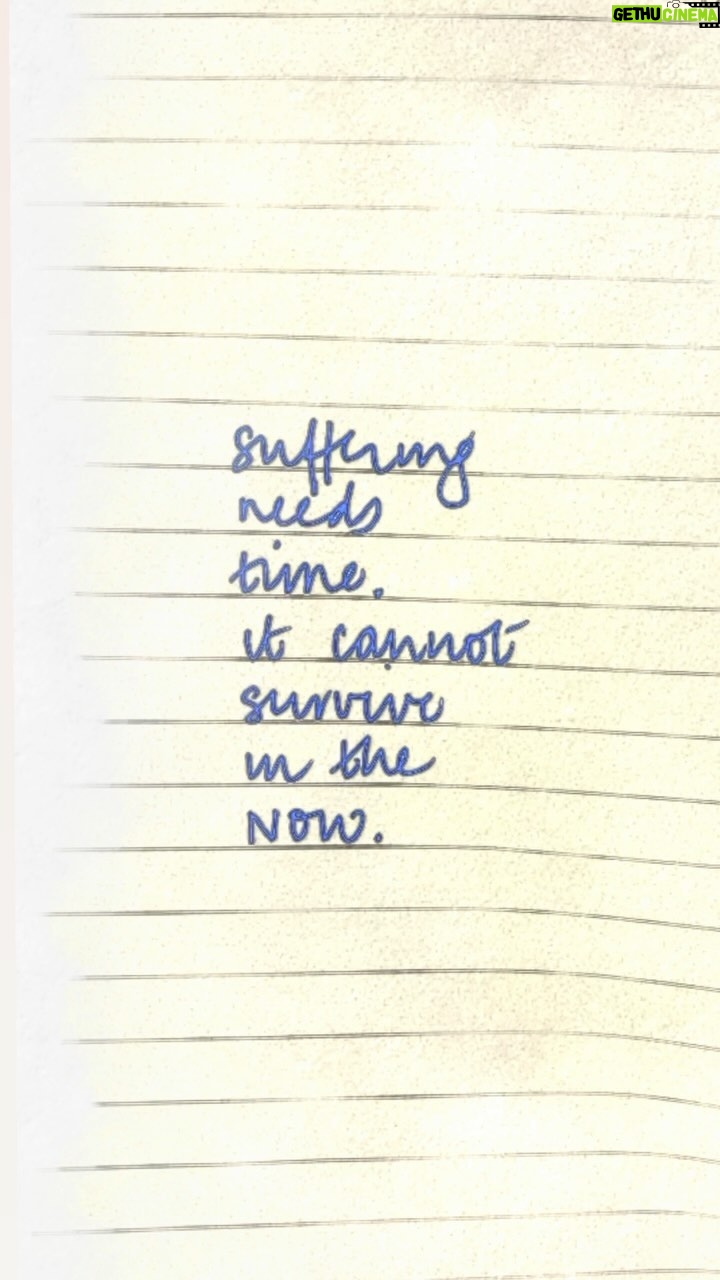 GETHU CINEMA
suffering
needs
time.
it cannot
survive
in the
NOW.